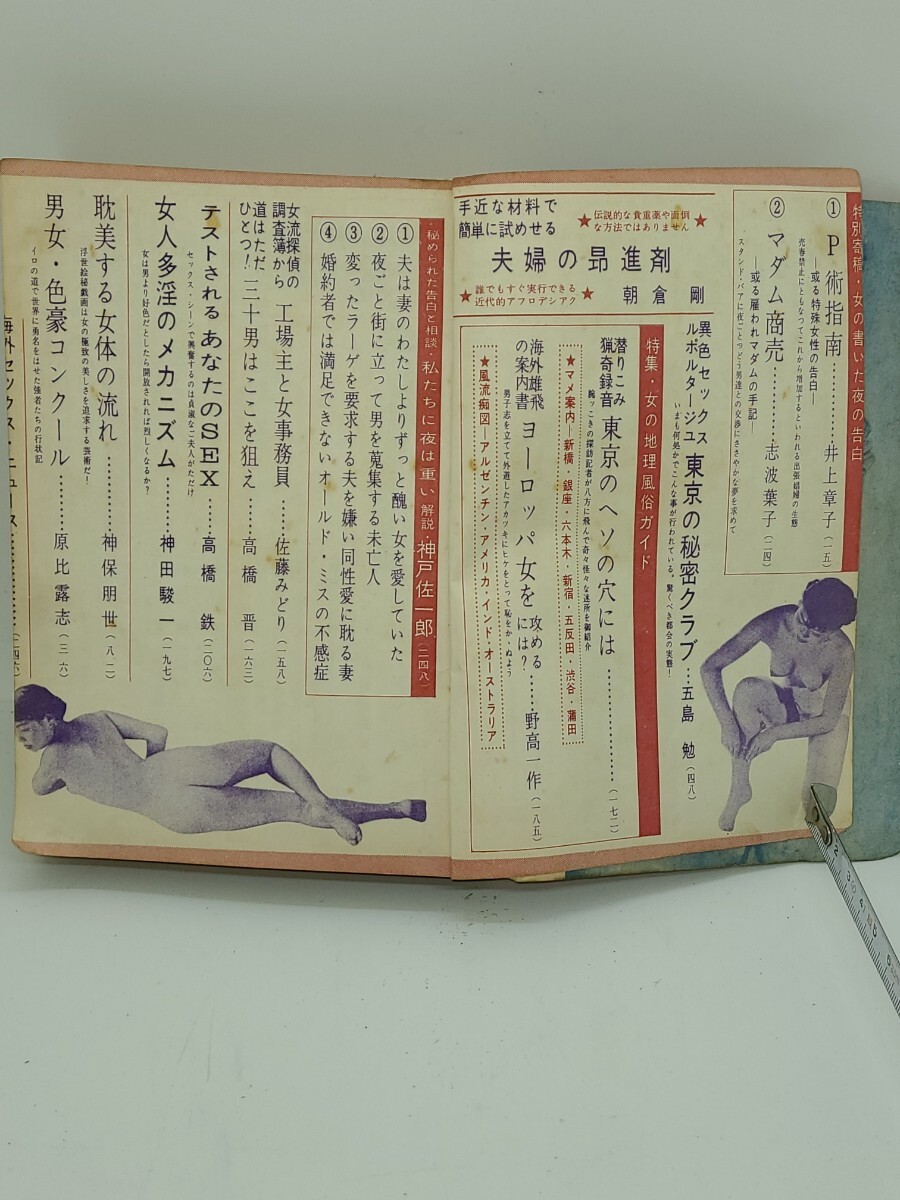 特別寄稿・女の書いた夜の告白
① P術指南………井上章子(一五)
―或る特殊女性の告白―
売春禁止にともなってこれから増加するといわれる出張娼婦の生態
② マダム商売……志波葉子(二四)
―或る雇われマダムの手記―
スタンド・バアに夜ごとつどう男達との交渉にささやかな夢を求めて
手近な材料で
簡単に試めせる
★伝説的な貴重薬や面倒な方法ではありません★
夫婦の昻進剤
★誰でもすぐ実行できる近代的アフロデシアク★
朝倉 剛
異色セックス
ルポルタージュ
東京の秘密クラブ…五島 勉(四八)
いまも何処かでこんな事が行われている、驚くべき都会の実態!
特集・女の地理風俗ガイド
潜りこみ
猟奇録音
東京のヘソの穴には…………(一七一)
腕ッこきの探訪記者が八方に飛んで奇々怪々な迷所を御紹介
★マメ案内―新橋・銀座・六本木・新宿・五反田・渋谷・蒲田
海外雄飛
の案内書
ヨーロッパ女を攻めるには?……野高一作(一八五)
男子志を立てて外遊したアカツキにヒケをとって恥をかゝぬよう
★風流痴図―アルゼンチン・アメリカ・インド・オーストラリア
・秘められた告白と相談・私たちに夜は重い 解説・神戸佐一郎(二四八)
① 夫は妻のわたしよりずっと醜い女を愛していた
② 夜ごと街に立って男を蒐集する未亡人
③ 変ったラーゲを要求する夫を嫌い同性愛に耽る妻
④ 婚約者では満足できないオールド・ミスの不感症
女流探偵の
調査簿から
工場主と女事務員……佐藤みどり(一五八)
道はただ
ひとつ!
三十男はここを狙え……高橋 晋(一六二)
テストされるあなたのSEX……高橋 鉄(二〇六)
セックス・シーンで興奮するのは貞淑なご夫人がただけ
女人多淫のメカニズム………神田駿一(一九七)
女は男より好色だとしたら開放されれば烈しくなるか?
耽美する女体の流れ………神保朋世(八二)
浮世絵秘戯画は女の極致の美しさを追求する芸術だ!
男女・色豪コンクール………原比露志(三六)
イロの道で世界に勇名をはせた強者たちの行状記
海外セックス・ニュース